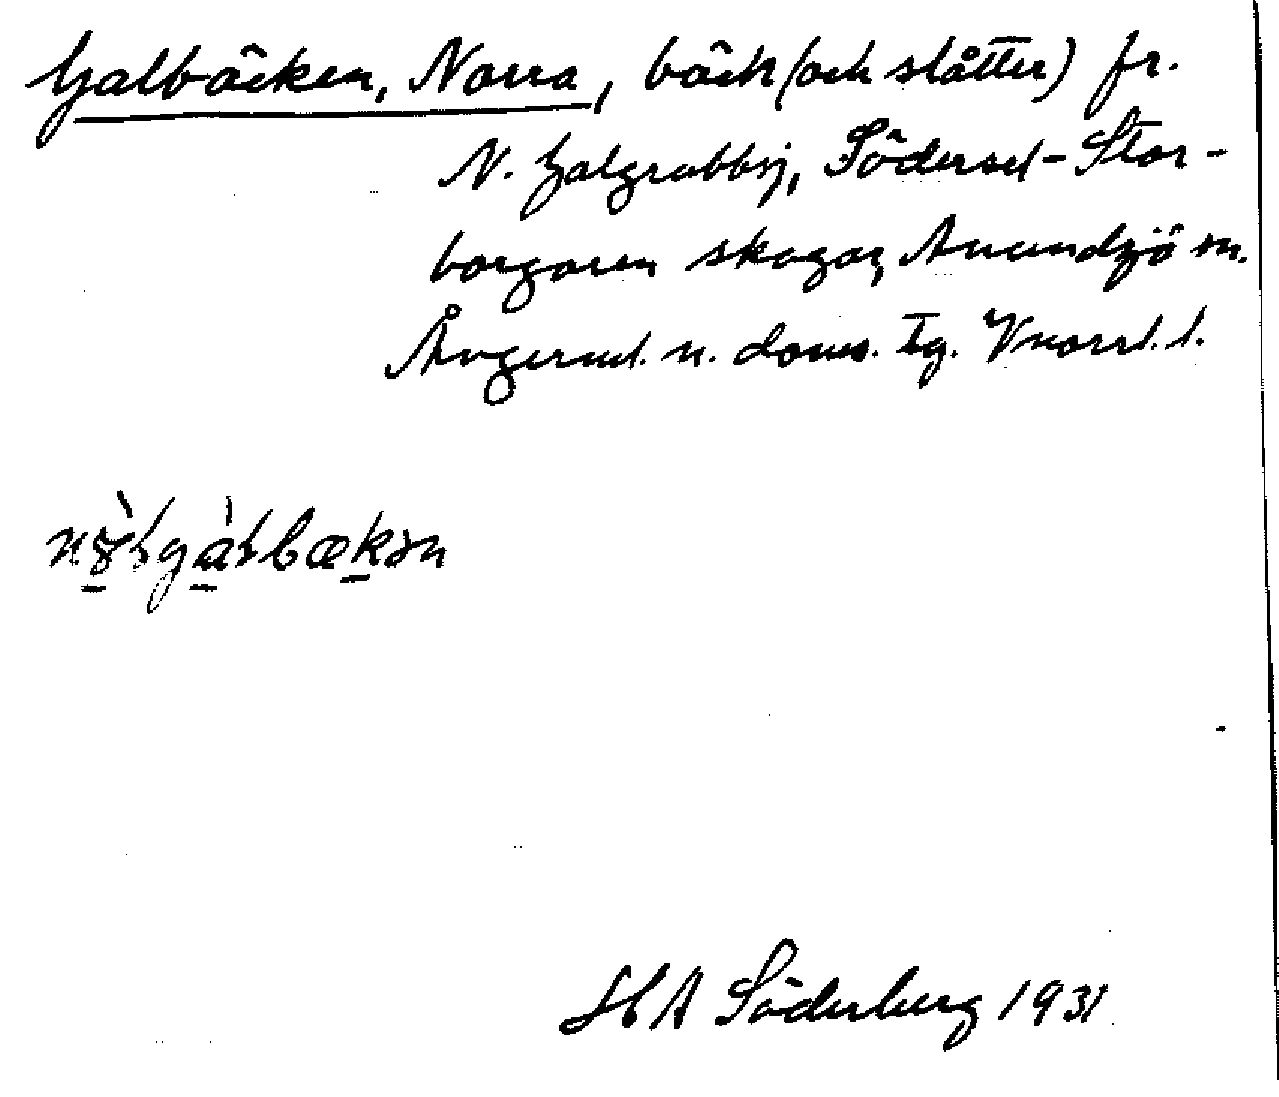 Galbäcken, Norra, bäck (och slåtter) fr.
N. Galgrabbsj, Södersel-Stor-
borgaren skogar, Anundsjö sn.
Ångerml. n. doms. tg. Vnorrl. l.
HA Söderberg 1931